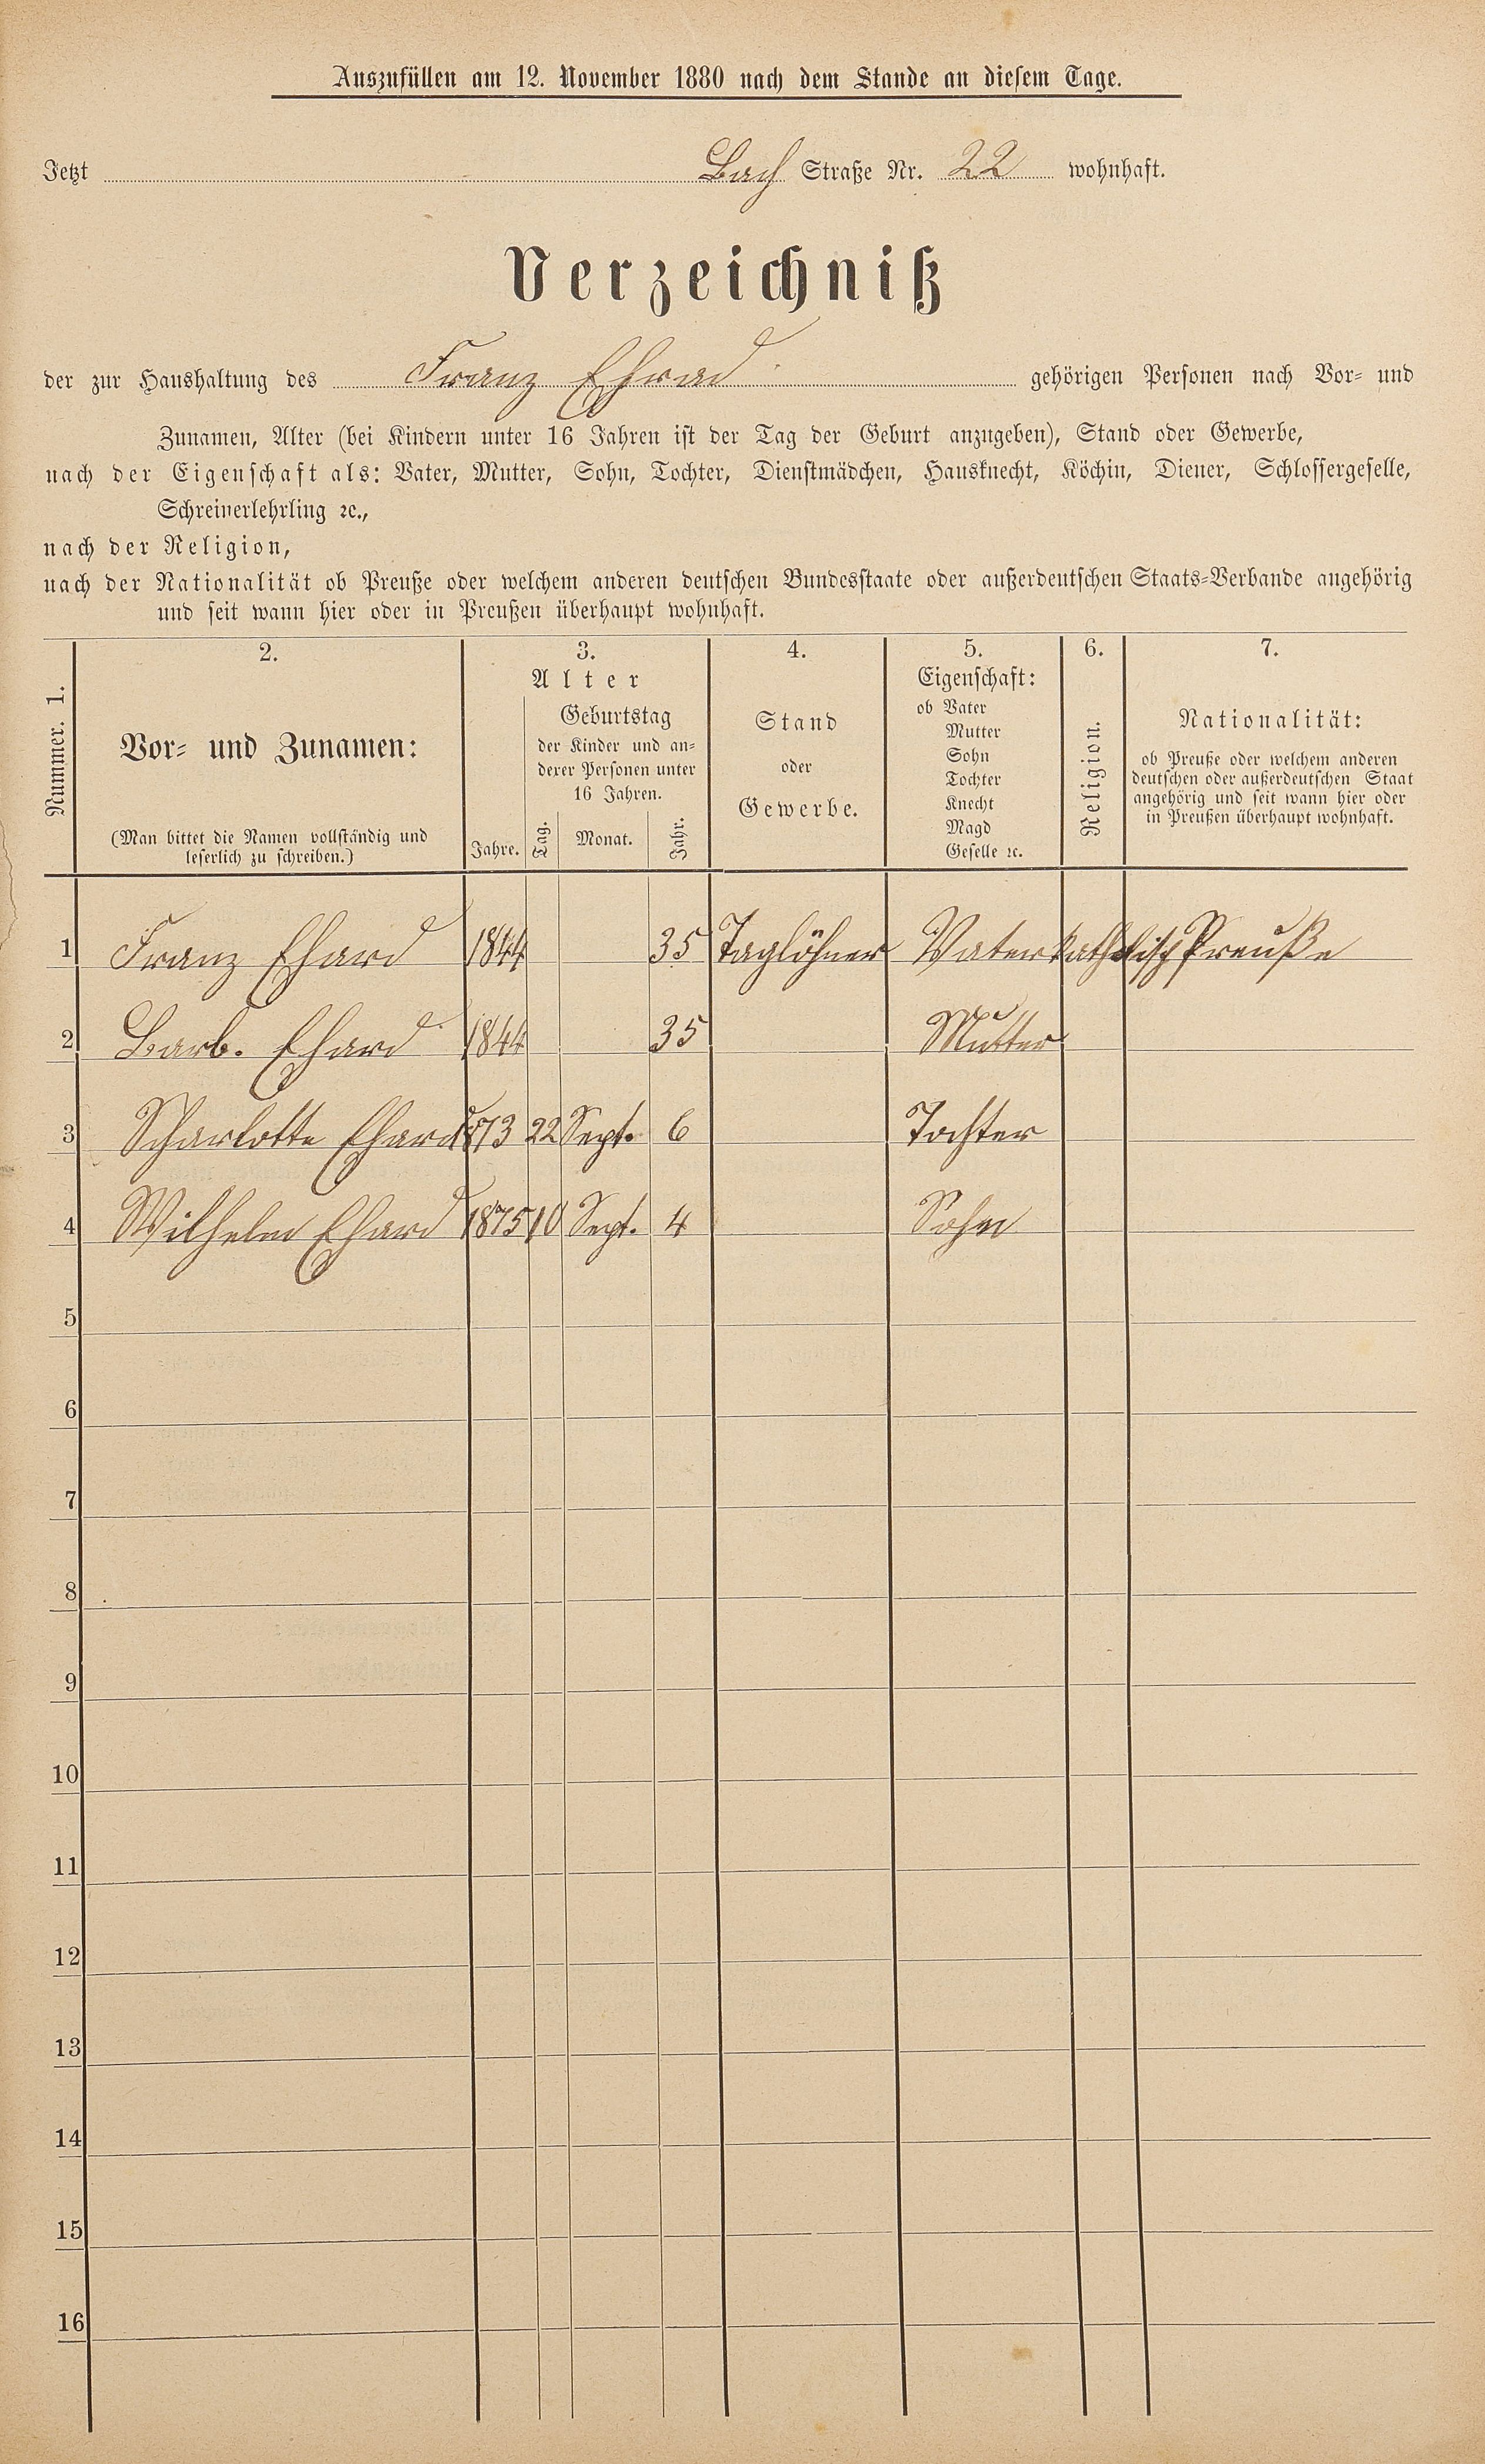 Auszufüllen am 12. November 1880 nach dem Stande an diesem Tage.
Jetzt Bach Straße Nr. 22 wohnhaft.
Verzeichniß
der zur Haushaltung des Franz Ehrad gehörigen Personen nach Vor- und
Zunamen, Alter (bei Kindern unter 16 Jahren ist der Tag der Geburt anzugeben), Stand oder Gewerbe,
nach der Eigenschaft als: Vater, Mutter, Sohn, Tochter, Dienstmädchen, Hausknecht, Köchin, Diener, Schlossergeselle,
Schreinerlehrling ꝛc.,
nach der Religion,
nach der Nationalität ob Preuße oder welchem anderen deutschen Bundesstaate oder außerdeutschen Staats-Verbande angehörig
und seit wann hier oder in Preußen überhaupt wohnhaft.
Nummer. 1.
2.
Vor- und Zunamen:
(Man bittet die Namen vollständig und
leserlich zu schreiben.)
3.
Alter
Jahre.
Geburtstag
der Kinder und an-
derer Personen unter
16 Jahren.
Tag. Monat. Jahr.
4.
Stand
oder
Gewerbe.
5.
Eigenschaft:
ob Vater
Mutter
Sohn
Tochter
Knecht
Magd
Geselle ꝛc.
6.
Religion.
7.
Nationalität:
ob Preuße oder welchem anderen
deutschen oder außerdeutschen Staat
angehörig und seit wann hier oder
in Preußen überhaupt wohnhaft.
1 Franz Ehard 1844 35 Taglöhner Vater katholisch Preuße
2 Barb. Ehard 1844 35 Mutter
3 Scharlotte Ehard 1873 22 Sept. 6 Tochter
4 Wilhelm Ehard 1875 10 Sept. 4 Sohn
5
6
7
8
9
10
11
12
13
14
15
16